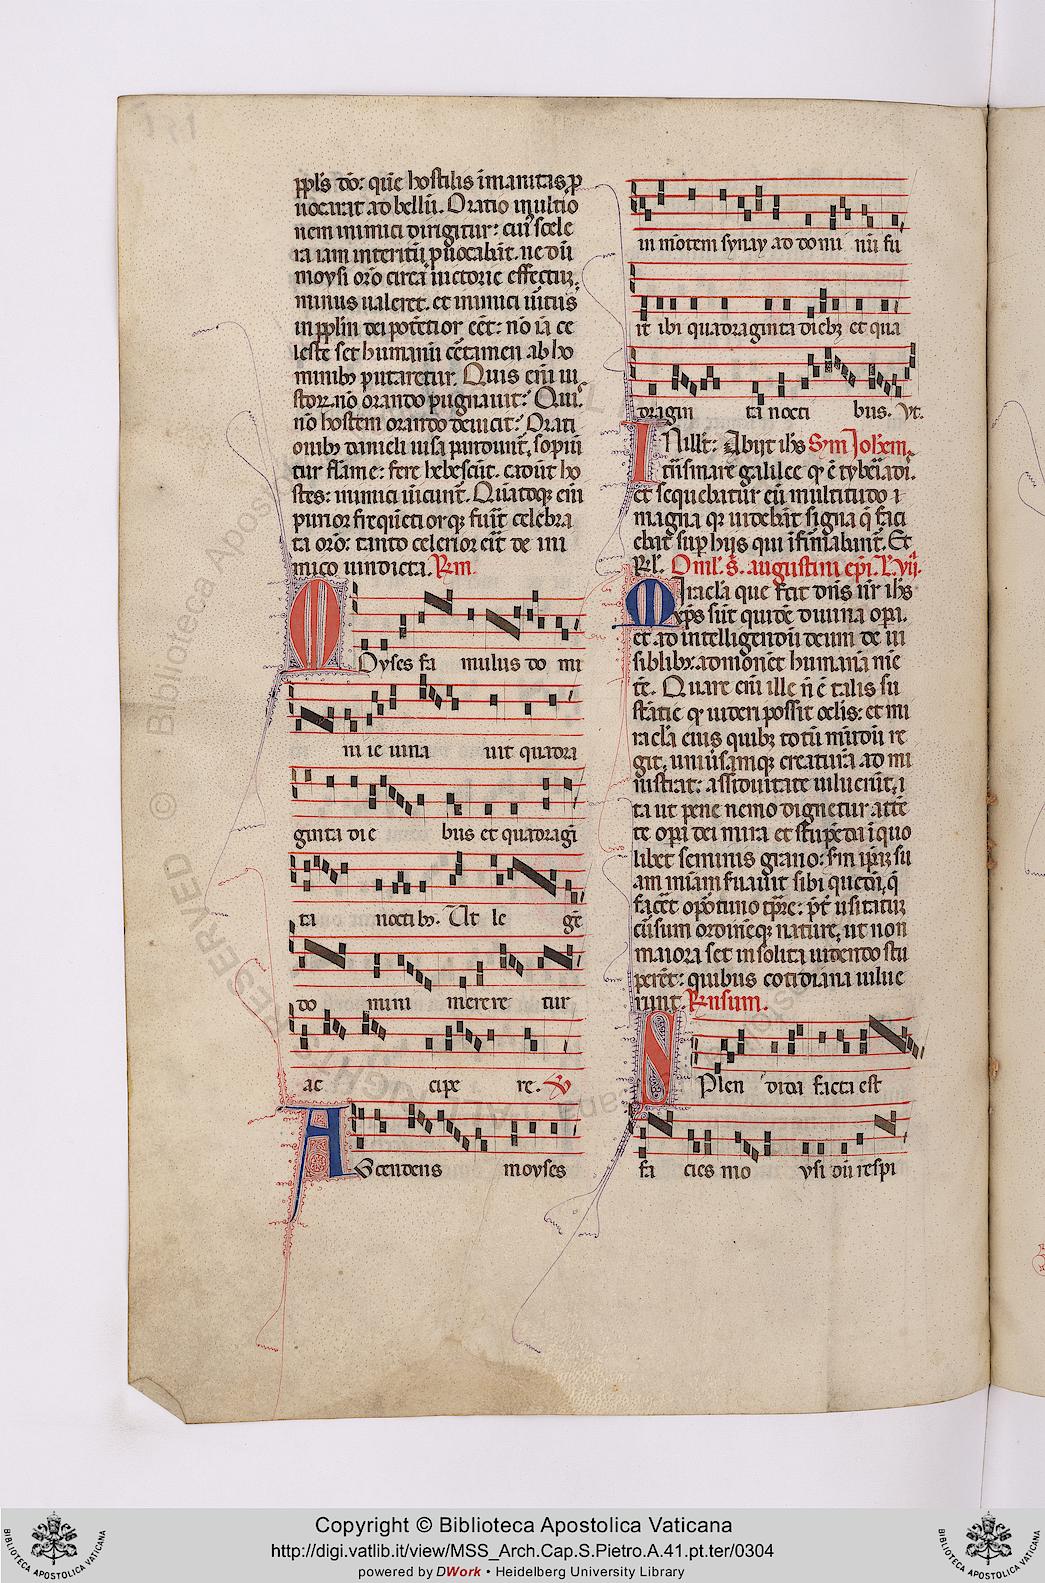 ppl's dō: quē hostilis īmanitas p
uocarat ad bellū. Oratio īquitio
nem inimici dirigitur: cui' scele
ra iam interitū puocabāt. ne dū
moysi orō circa uictorie effectuȝ.
minus ualeret. et inimici uirtus
in pplm dei potētior eēt: nō iā ce
leste set humanū cētamen ab ho
minibȝ putaretur. Quis enī ui
storȝ nō orando pugnauit: Qui
nō hostem orando deuicit: Orati
onibȝ danieli uisa pandunt, sopiū
tur flāme: fere hebescūt. cadūt ho
stes: inimici uicunt. Quātoqȝ enī
purior frequētiorqȝ fuit celebra
ta orō: tanto celerior erit de ini
mico uindicta. Rm.
Moyses fa mulus do mi
ni ie iuna uit quadra
ginta die bus et quadragī
ta noctibȝ. Ut le gē
do mini merere tur
ac cipe re. V
Ascendens moyses
in mōtem synay ad do mi nū fu
it ibi quadraginta diebȝ et qua
dragin ta nocti bus. Vt.
In illt: Abijt ihs Sm Johem.
trāsmare galilee qͥ ē tyberiadi.
et sequebatur eū multitudo
magna qͥ uidebāt signa q̄ faci
ebat sup hijs qui īfirmabant. Et
Rl. Oml' s. augustini epi. L. vij.
Miracla que fecit dn̄s n̄r ihs
xps sūt quidē diuina opa.
et ad intelligendū deum de ui
siblibȝ admonēt humanā mē
tē. Quare enī ille n̄ ē talis sū
stātie qͥ uideri possit oclis: et mi
racla eius quibȝ totū mūdū re
git, uniūsamqȝ creaturā ad mi
nistrat: assiduitate uiluerūt, i
ta ut pene nemo dignetur attē
te opa dei mira et stupēda ī quo
libet seminis grano: sm ipāȝ su
am miām suauit sibi quedā, q̄
facēt opōtuno tpre: pt̄ usitatuȝ
cūsum ordinēqȝ nature, ut non
maiora set insolita uidendo stu
perēt: quibus cotidiana uilue
runt. Rursum.
Splen dida facta est
fa cies mo ysi dū respi
Copyright © Biblioteca Apostolica Vaticana
http://digi.vatlib.it/view/MSS_Arch.Cap.S.Pietro.A.41.pt.ter/0304
powered by DWork • Heidelberg University Library
BIBLIOTECA APOSTOLICA VATICANA
BIBLIOTECA APOSTOLICA VATICANA